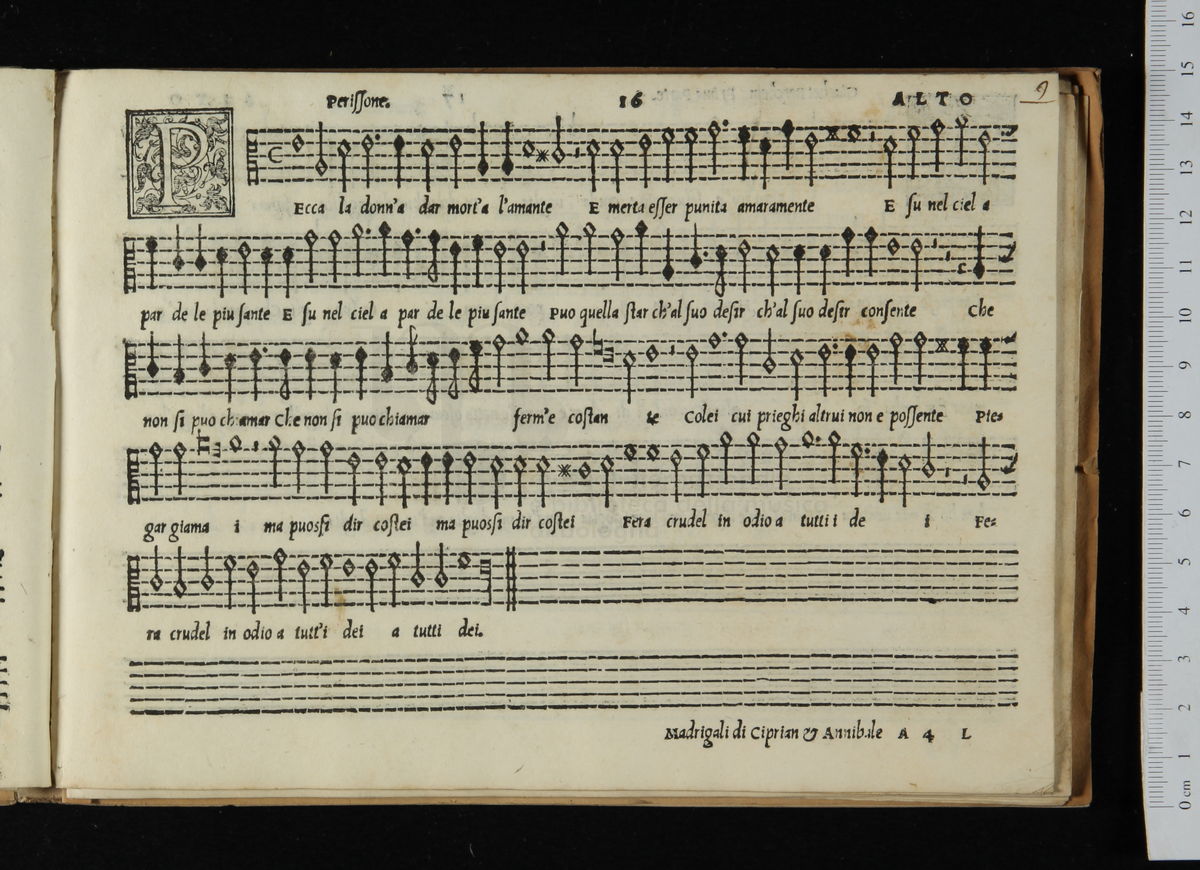 Perissone. 16 ALTO 9
PEcca la donn'a dar mort'a l'amante E merta esser punita amaramente E su nel ciel a
par de le piu sante E su nel ciel a par de le piu sante Puo quella star ch'al suo desir ch'al suo desir consente Che
non si puo chiamar Che non si puo chiamar ferm'e costan te Colei cui prieghi altrui non e possente Pie=
gar giama i ma puossi dir costei ma puossi dir costei Fera crudel in odio a tutti i de i Fe=
ra crudel in odio a tutt'i dei a tutti dei.
Madrigali di Ciprian & Annibale A 4 L
16
15
14
13
12
11
10
9
8
7
6
5
4
3
2
1
0 cm